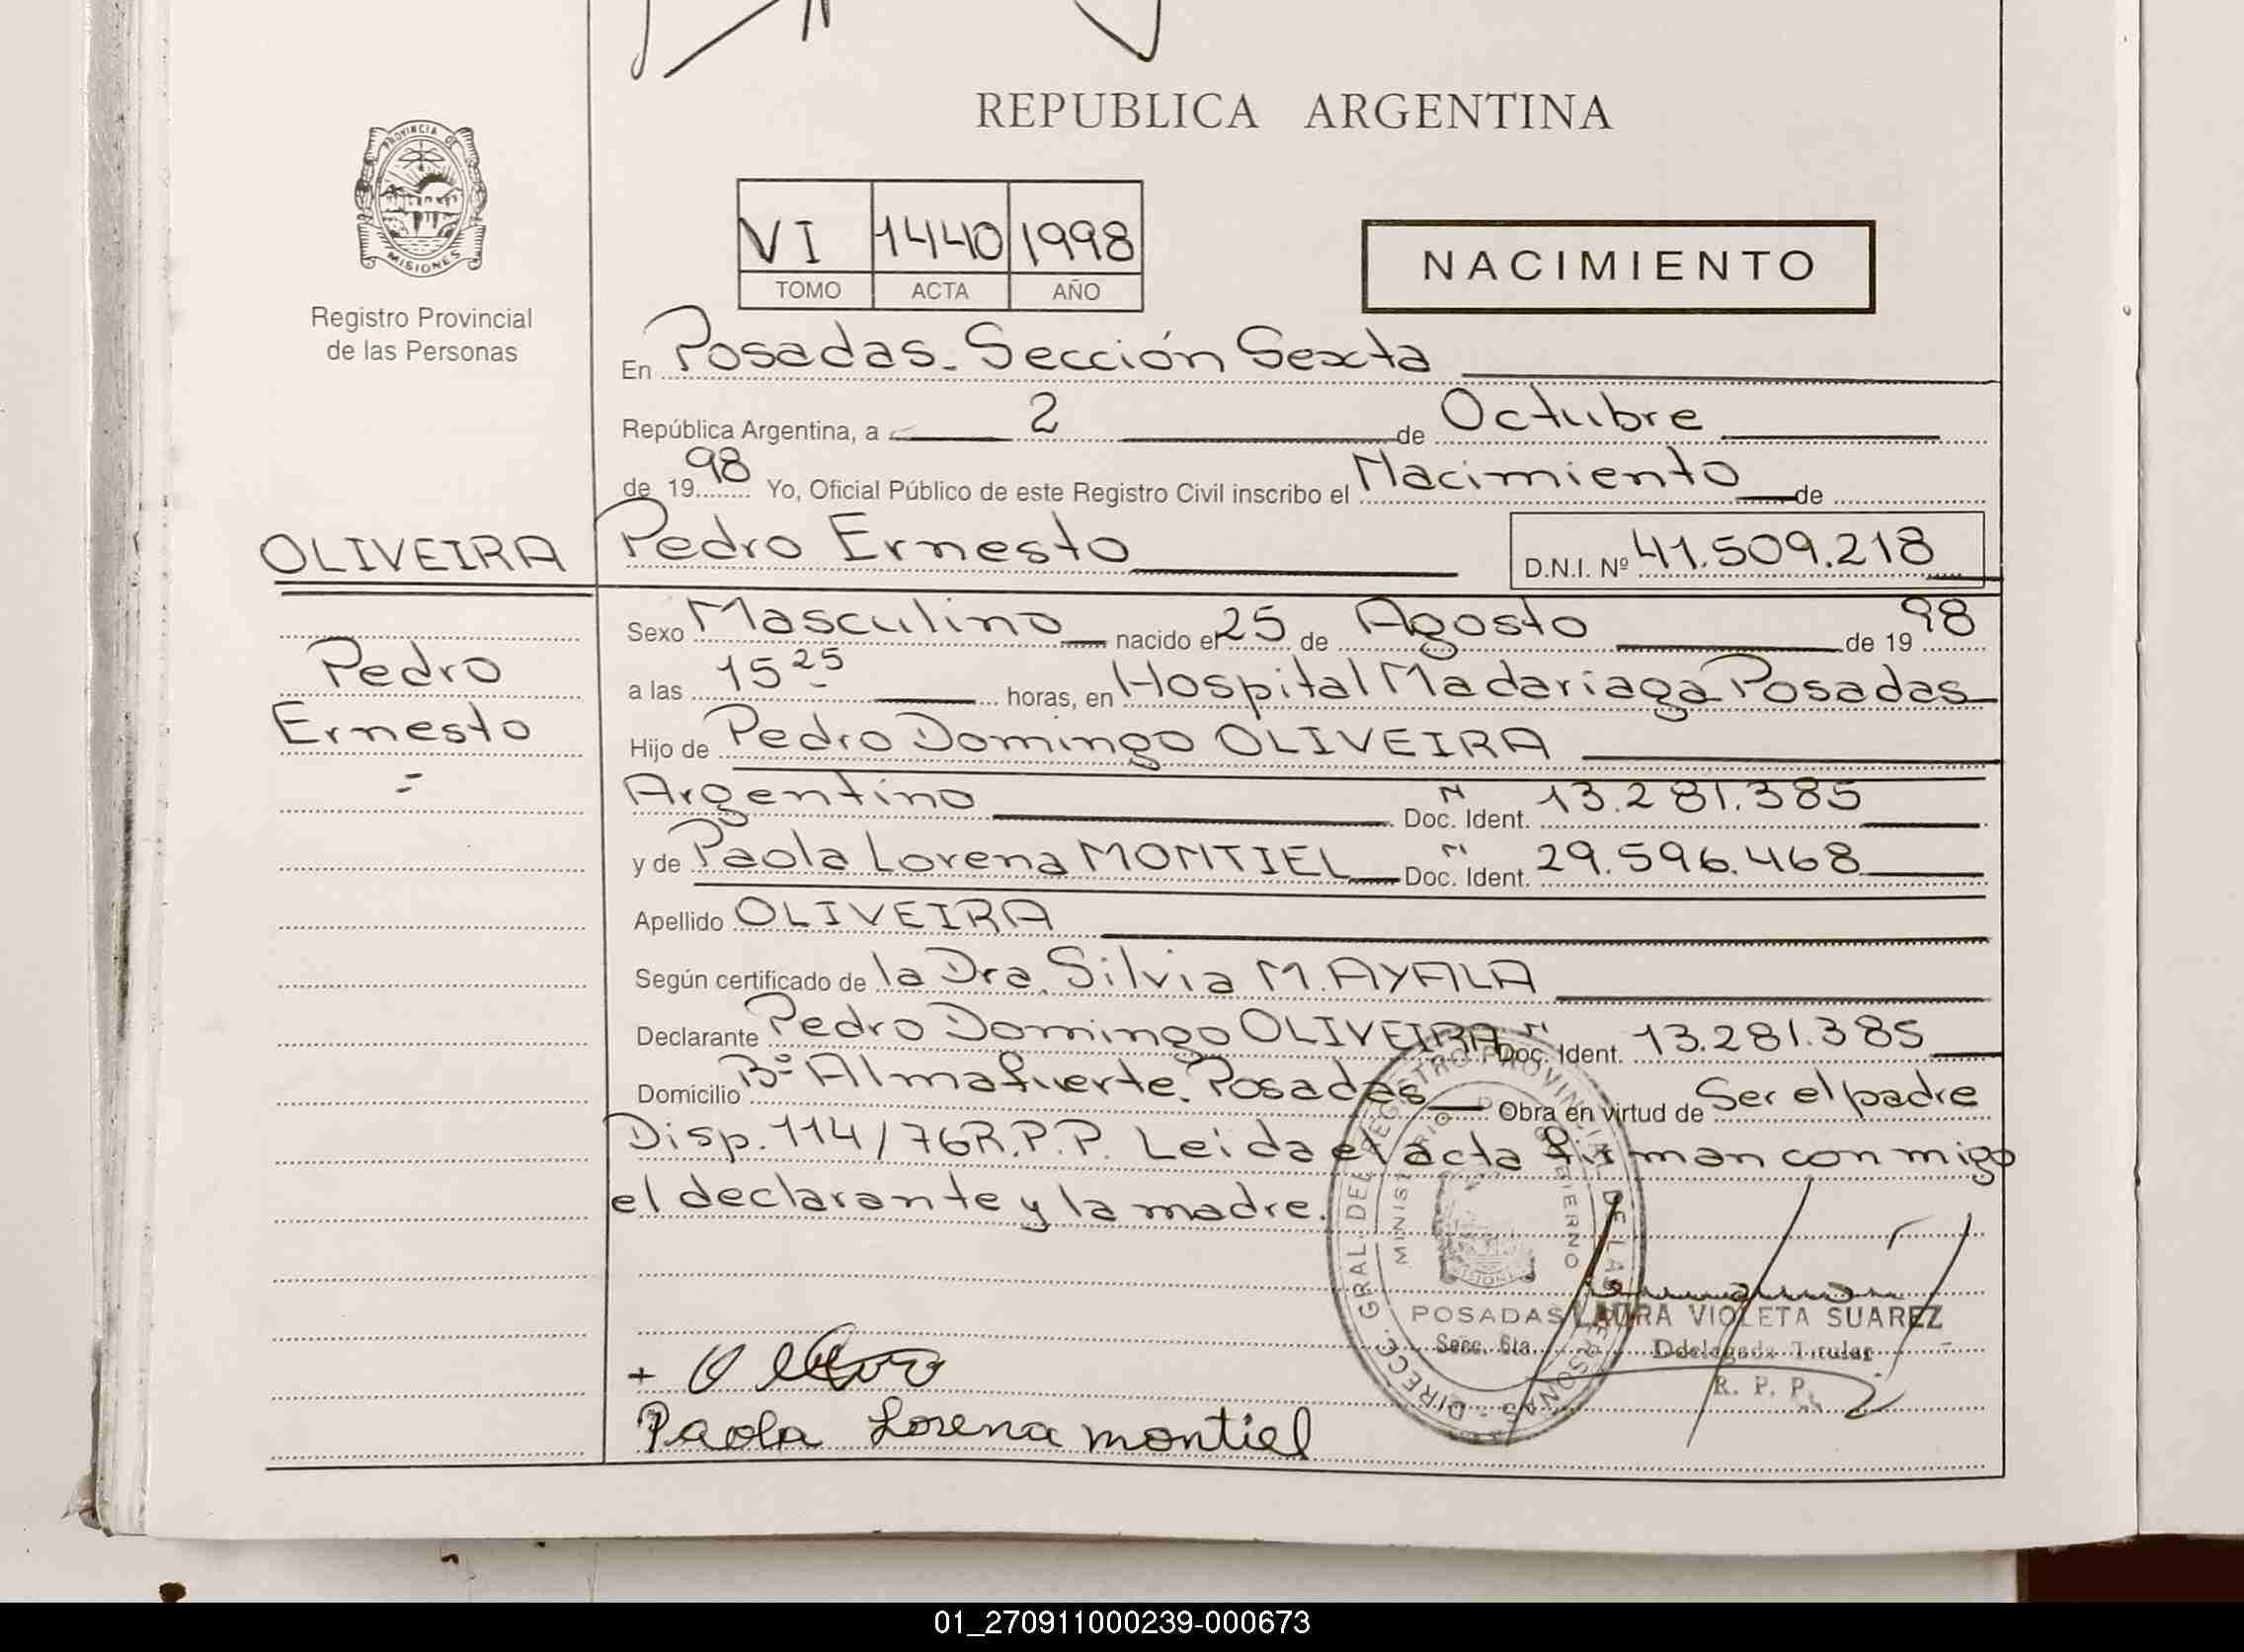 REPUBLICA ARGENTINA
PROVINCIA DE
MISIONES
Registro Provincial
de las Personas
VI 1440 1998
TOMO ACTA AÑO
NACIMIENTO
En Posadas. Sección Sexta
República Argentina, a 2 de Octubre
de 1998 Yo, Oficial Público de este Registro Civil inscribo el Nacimiento de
OLIVEIRA Pedro Ernesto D.N.I. Nº 41.509.218
Sexo Masculino nacido el 25 de Agosto de 1998
Pedro
a las 15 25 horas, en Hospital Madariaga Posadas
Ernesto
Hijo de Pedro Domingo OLIVEIRA
Argentino Doc. Ident. N 13.281.385
y de Paola Lorena MONTIEL Doc. Ident. N 29.596.468
Apellido OLIVEIRA
Según certificado de la Dra. Silvia M. AYALA
Declarante Pedro Domingo OLIVEIRA Doc. Ident. N 13.281.385
Domicilio Bº Almafuerte. Posadas Obra en virtud de Ser el padre
Disp. 114/76 R.P.P. Leida el acta firman con migo
el declarante y la madre.
DIRECC. GRAL. DEL REGISTRO PROVINCIAL DE LAS PERSONAS
MINISTERIO DE GOBIERNO
POSADAS
Secc. 6ta.
LAURA VIOLETA SUAREZ
Ddelegada Titular
R. P. P.
Paola Lorena montiel
01_270911000239-000673